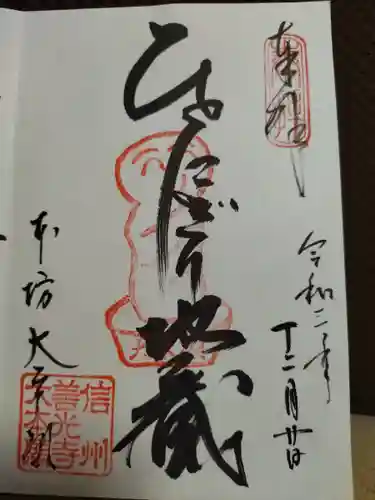 奉拝
令和二年
十二月廿日
ひとにぎり地蔵
本坊 大本願
信州
善光寺
大本願